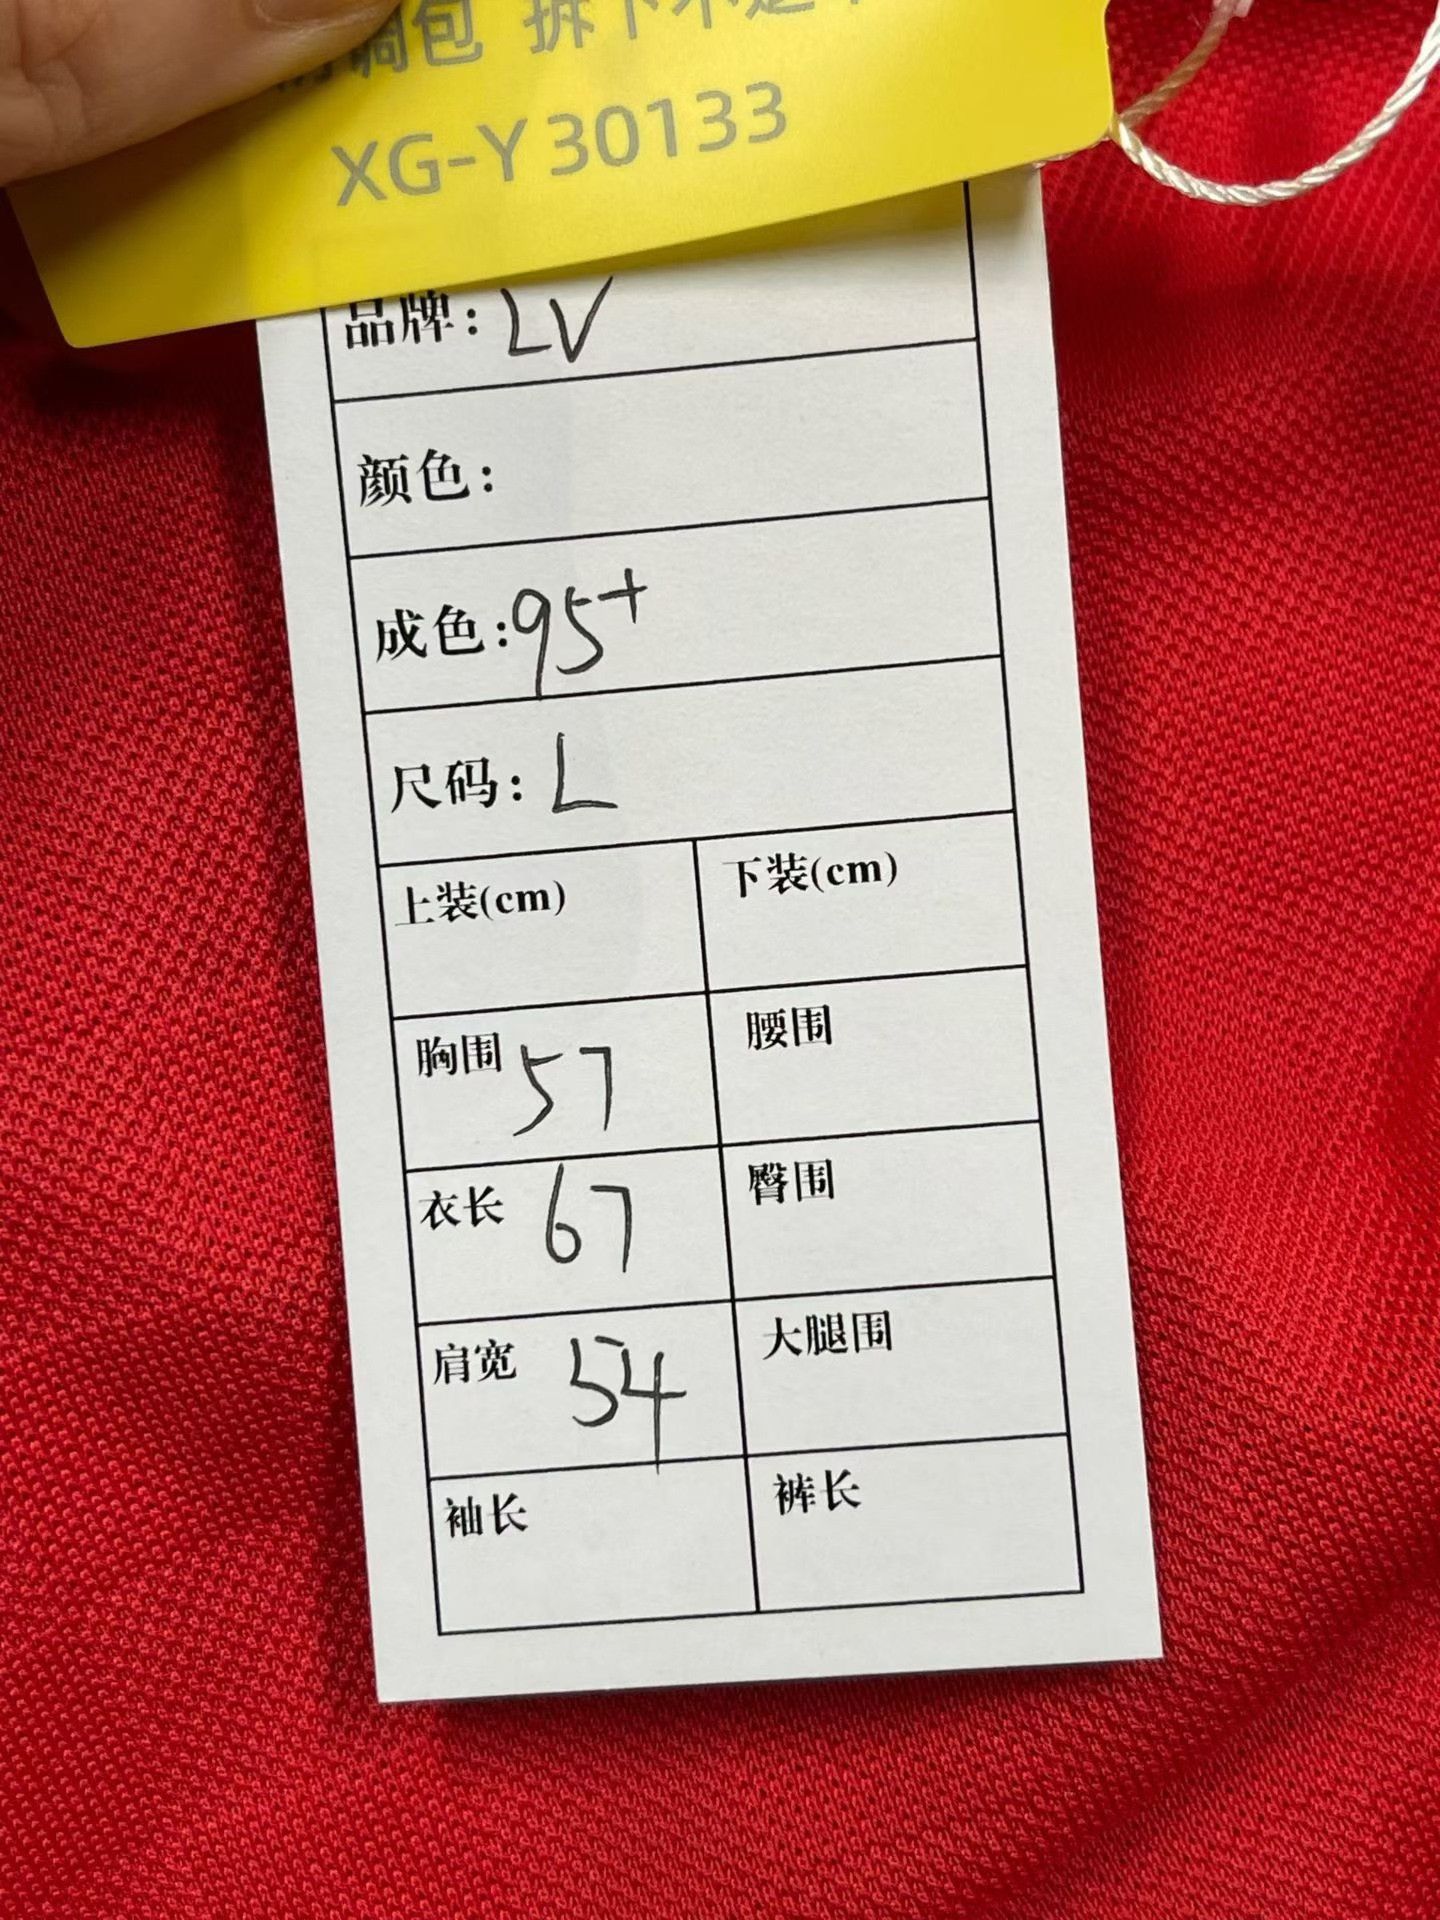 调包 拆下不退
XG-Y30133
品牌: LV
颜色:
成色: 95+
尺码: L
上装(cm) 下装(cm)
胸围 57 腰围
衣长 67 臀围
肩宽 54 大腿围
袖长 裤长